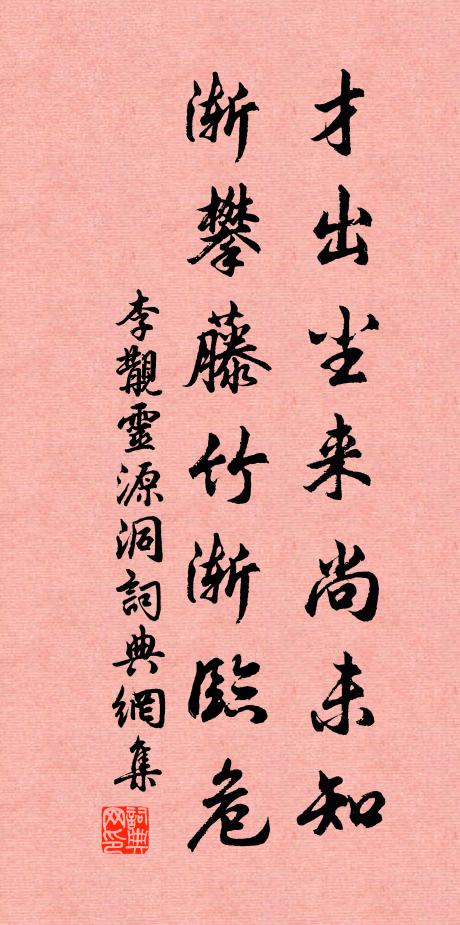 才出尘来尚未知
渐攀藤竹渐臨危
李覯靈源洞詞典網集
詞典网印